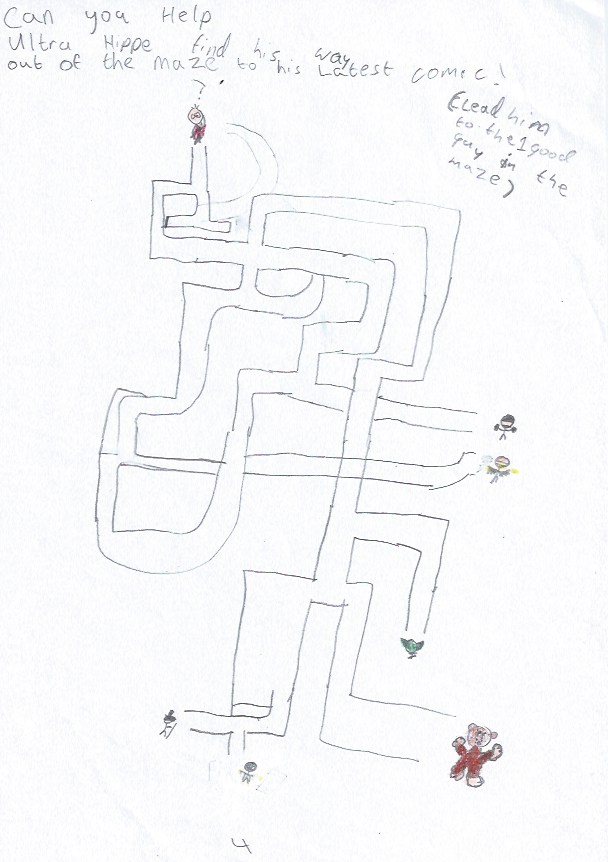 Can you Help
Ultra Hippe find his way
out of the maze to his Latest comic!
?
(Lead him
to the 1 good
guy in the
maze)
4